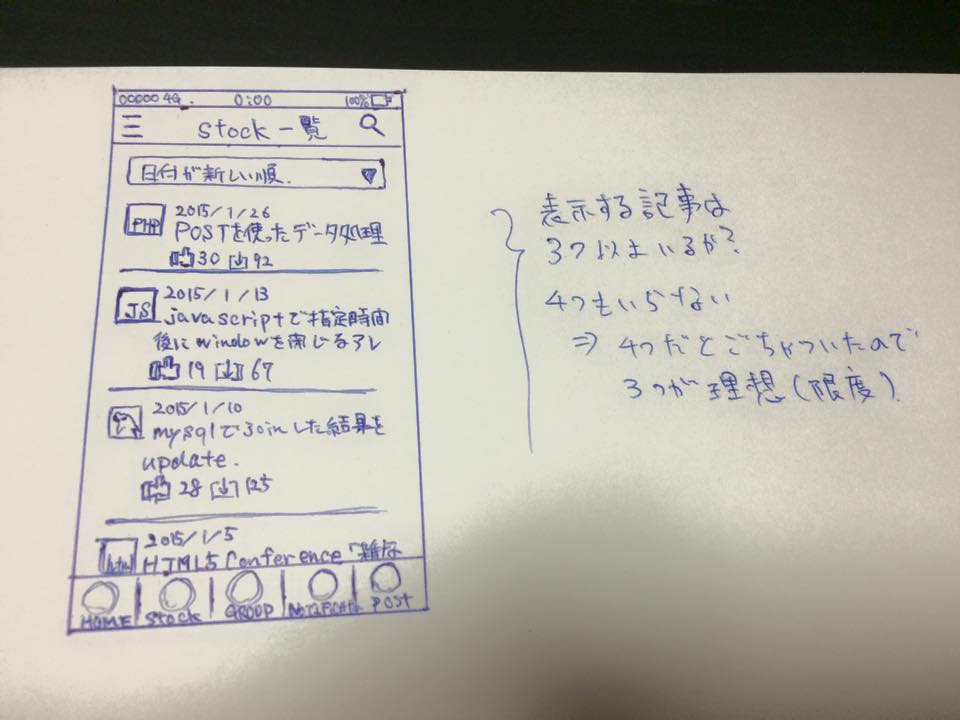 00000 4G. 0:00 100%
Stock 一覧
日付が新しい順.
PHP
2015/1/26
POSTを使ったデータ処理
30 92
JS
2015/1/13
javascriptで指定時間
後にwindowを閉じるアレ
19 67
2015/1/10
mysqlでJoinした結果を
update.
28 125
html
2015/1/5
HTML5 Conference 「雑な
HOME Stock GROUP POST
表示する記事は
3つ以上いるか?
4つもいらない
⇒ 4つだとごちゃついたので
3つが理想(限度)